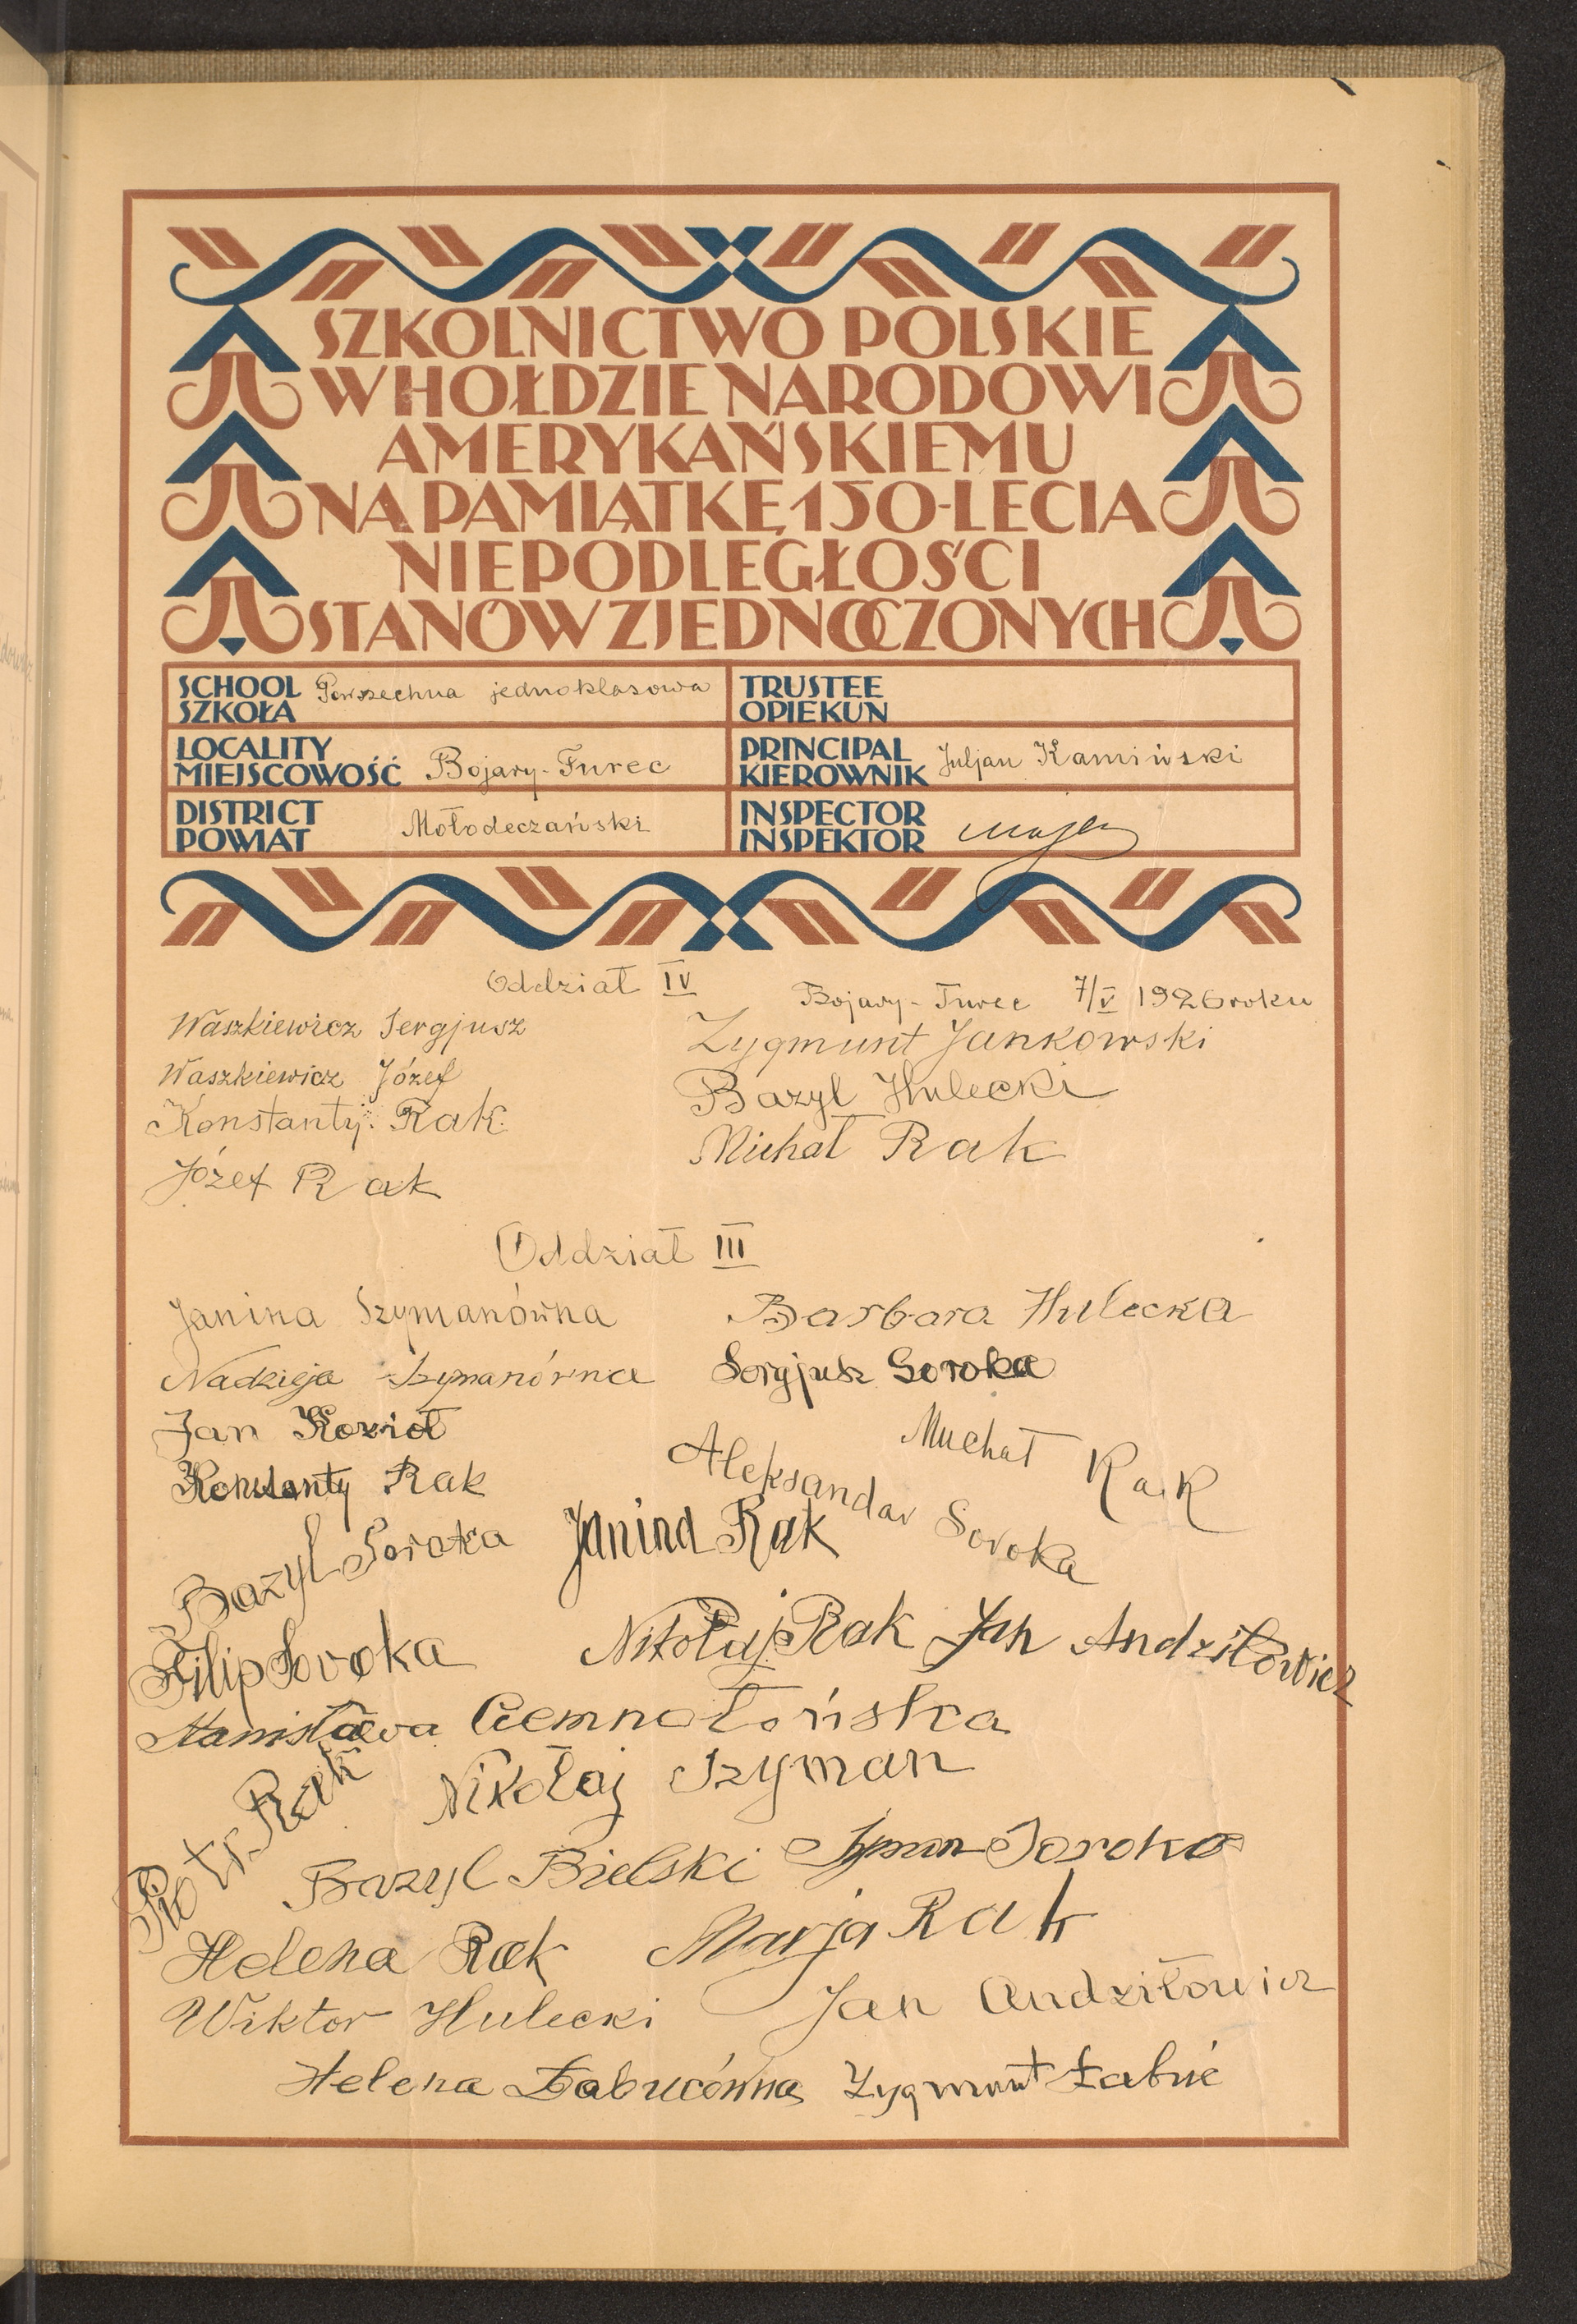 SZKOLNICTWO POLSKIE
W HOŁDZIE NARODOWI
AMERYKAŃSKIEMU
NA PAMIĄTKĘ 150-LECIA
NIEPODLEGŁOŚCI
STANÓW ZJEDNOCZONYCH
SCHOOL SZKOŁA Powszechna jednoklasowa
TRUSTEE OPIEKUN
LOCALITY MIEJSCOWOŚĆ Bojary-Turec
PRINCIPAL KIEROWNIK Juljan Kamiński
DISTRICT POWIAT Mołodeczański
INSPECTOR INSPEKTOR
Oddział IV
Bojary-Turec 7/V 1926 roku
Waszkiewicz Sergjusz
Zygmunt Jankowski
Waszkiewicz Józef
Bazyl Hulecki
Konstanty Rak
Michał Rak
Józef Rak
Oddział III
Janina Szymanówna
Barbara Hulecka
Nadzieja Szymanówna
Sergjusz Soroka
Jan Kozioł
Muchał Rak
Konstanty Rak
Aleksandar Soroka
Bazyl Soroka
Janina Rak
Filip Soroka
Nikołaj Rak
Jan Andziłowicz
Stanisława Ciemnołońska
Piotr Rak
Nikołaj Szyman
Bazyl Bielski
Szyman Soroka
Helena Rak
Marja Rak
Wiktor Hulecki
Jan Andziłowicz
Helena Łabucówna
Zygmunt Łabuć